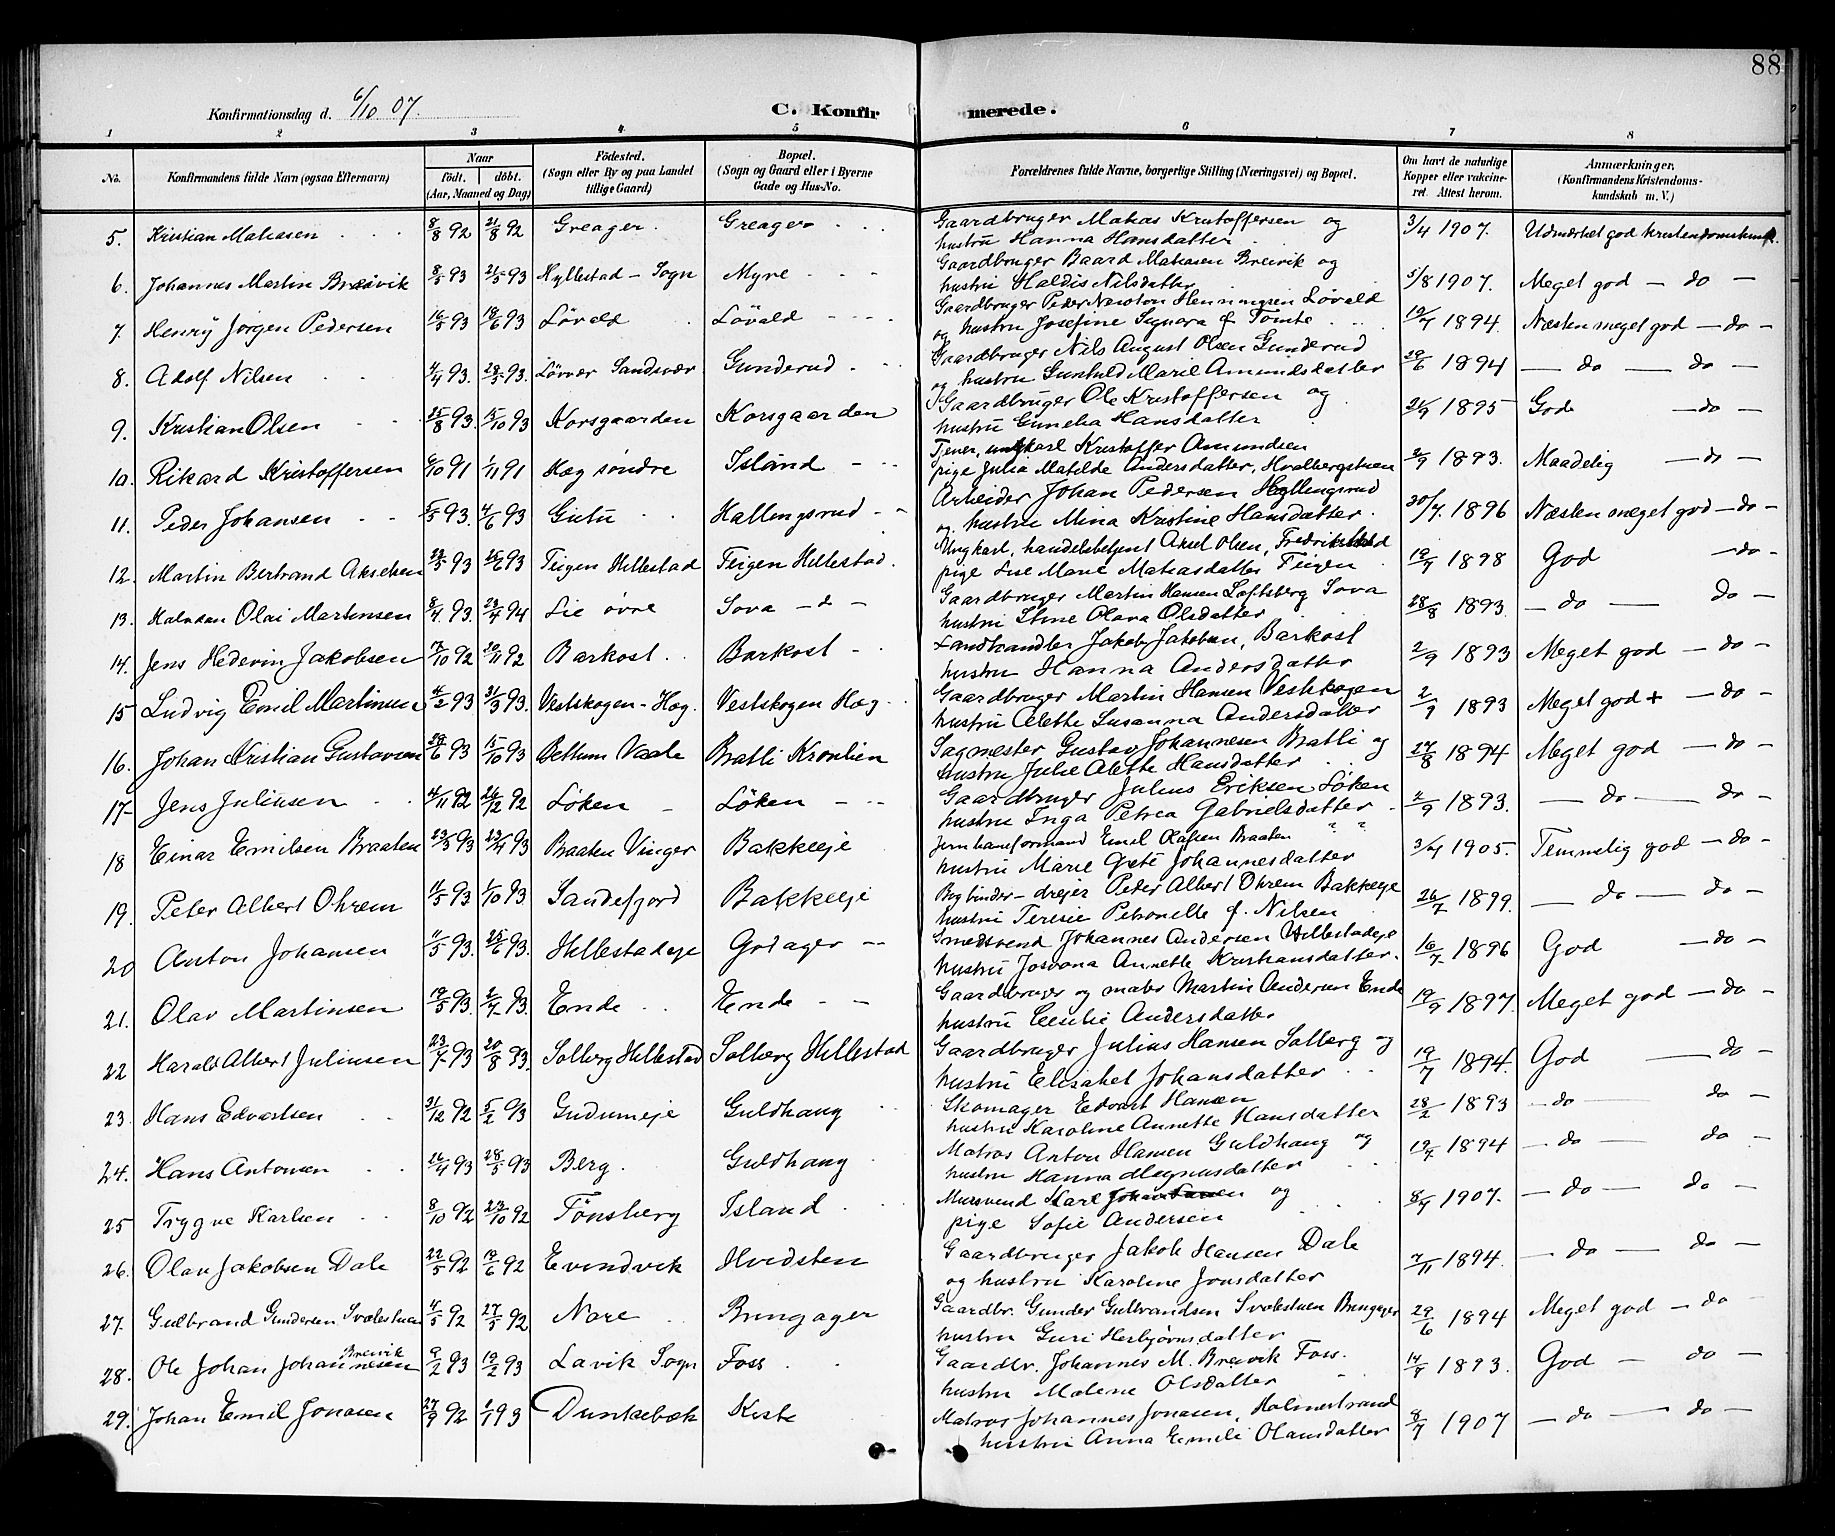 88
Konfirmationsdag d. 6/10 07.
C. Konfirmerede.
1 2 3 4 5 6 7 8
No. Konfirmandens fulde Navn (ogsaa Efternavn) Naar födt. döbt. (Aar, Maaned og Dag) Födested. (Sogn eller By og paa Landet tillige Gaard) Bopæl. (Sogn og Gaard eller i Byerne Gade og Hus-No. Forældrenes fulde Navne, borgerlige Stilling (Næringsvei) og Bopæl. Om havt de naturlige Kopper eller vaccineret. Attest herom. Anmærkninger, (Konfirmandens Kristendomskundskab m. V.)
5. Kristian Matiasen 8/8 92 21/8 92 Greager. Greager Gaardbruger Matias Kristoffersen og
hustru Hanna Hansdatter 3/4 1907. Udmærket god kristendomskunsk.
6. Johannes Martin Breivik 8/5 93 21/5 93 Hyllestad - Sogn Myre Gaardbruger Baard Matiasen Breivik og
hustru Haldis Nilsdatter 5/8 1907. Meget god - do -
7. Henry Jörgen Pedersen 16/5 93 18/6 93 Lövald Lövald Gaardbruger Peder Newton Henningsen Lövald
og hustru Josefine Signora f. Tomte 19/7 1894. Næsten meget god - do -
8. Adolf Nilsen 4/4 93. 28/5 93. Sandsvær Gunderud Gaardbruger Nils August Olsen Gunderud
og hustru Gunhild Marie Amundsdatter 29/6 1894 - do - do -
9. Kristian Olsen 25/8 93. 15/10 93 Korsgaarden Korsgaarden Gaardbruger Ole Kristoffersen og
hustru Hansdatter 21/9 1895 Gode - do -
10. Rikard Kristoffersen 6/10 91 1/11 91 Hæg söndre Island Tjener, ungkarl Kristoffer Amundsen
pige Julia Matilde Andersdatter, Hvalbergstuen 2/9 1893. Maadelig - do -
11. Peder Johansen 5/5 93. 4/6 93 Gutu Hallingsrud Arbeider Johan Pedersen Hallingsrud
og hustru Mina Kristine Hansdatter. 30/7. 1896 Næsten meget god - do -
12. Martin Bertrand Akselsen 25/6 93 Teigen Hillestad Teigen Hillestad. Ungkarl, handelsbetjent Aksel Olsen, Fredrikstad
pige Lise Marie Matiasdatter Teigen 19/7 1898 God - do -
13. Halvdan Olai Martinsen 8/4 93. 23/4 94 Lie övre Sova Gaardbruger Martin Hansen Loftsberg Sova
hustru Stine Olava Olsdatter 28/8 1893. - do - do -
14. Jens Hedevin Jakobsen 17/10 92 20/11 92 Barkost Barkost - Landhandler Jakob Jakobsen, Barkost
hustru Hanna Andersdatter 2/9 1893 Meget god - do -
15 Ludvig Emil Martinsen 11/2 93 31/3 93. Vestskogen - Hæg. Vestskogen Hæg Gaardbruger Martin Hansen Vestskogen
hustru Alette Susanna Andersdatter 2/9 1893 Meget god + - do -
16. Johan Kristian Gustavsen 29/6 93 15/10 93 Bettum Vaale Bratli Kronlien Sagmester Gustav Johannesen Bratli og
hustru Julie Alette Hansdatter 27/8 1894 Meget god - do -
17. Jens Juliusen 4/11 92 26/12 92 Löken Löken Gaardbruger Julius Eriksen Löken
hustru Inga Petrea Gabrielsdatter 2/9 1893. - do - do -
18 Einar Emilsen Braaten 23/3 93 23/4 93 Braaten Vinger Bakkeeje Jernbaneformand Emil Olafsen Braaten
hustru Marie Johannesdatter 3/4 1905. Temmelig god - do -
19. Peter Albert Ohrem 11/5 93 1/10 93 Sandefjord Bakkeeje drejer Peter Albert Ohrem Bakkeeje
hustru Teresie Petronelle f. Nilsen 26/7 1899. - do - do -
20 Anton Johansen 11/5 93. 25/6 93. Hillestadeje Godager Smedsvend Johannes Andersen Hillestadeje
hustru Annette Kristiansdatter. 16/7 1896 God - do -
21. Olav Martinsen 19/5 93. 2/7 93. Ende Ende Gaardbruger og Martin Andersen Ende
hustru Cecilie Andersdatter 19/9 1897. Meget god - do -
22 Harald Albert Juliusen 23/7 93 20/8 93. Solberg Hillestad Solberg Hillestad Gaardbruger Julius Hansen Solberg og
hustru Elisabet Johansdatter 19/7 1894. God - do -
23. Hans Edvartsen 31/12 92 5/2 93 Gudumeje Guldhaug Skomager Edvart Hansen
hustru Karoline Annette Hansdatter 28/2 1893 - do - do -
24. Hans Antonsen 16/4 93 28/5 93 Berg. Guldhaug Matros Anton Hansen Guldhaug og
hustru Hanna Magnusdatter 19/7 1894 - do - do -
25 Trygve Karlsen 8/10 92 10 92 Tönsberg Island Mursvend Karl og
pige Sofie Andersen 8/7 1907. - do - do -
26. Olav Jakobsen Dale 22/5 92 19/6 92 Evindvik Hvidsten Gaardbruger Jakob Hansen Dale
og hustru Karoline Jonsdatter 7/11 1894. - do - do -
27. Gulbrand Gundersen Svalestuen 4/5 92 27/5 92 Nore Bringager Gaardbr. Gunder Gulbrandsen Svalestuen Bringager
hustru Guri Herbjörnsdatter 29/6 1894 Meget god - do -
28. Ole Johan Johannesen Breivik 9/2 93 19/2 93 Lavik Sogn Foss Gaardbr. Johannes M. Breivik Foss.
hustru Malene Olsdatter 14/9 1893. God - do -
29. Johan Emil Jonasen 27/9 92 1/1 93 Dunkebæk Kiste Matros Johannes Jonasen, Holmestrand
hustru Anna Emilie Olausdatter 8/7 1907 - do - do -